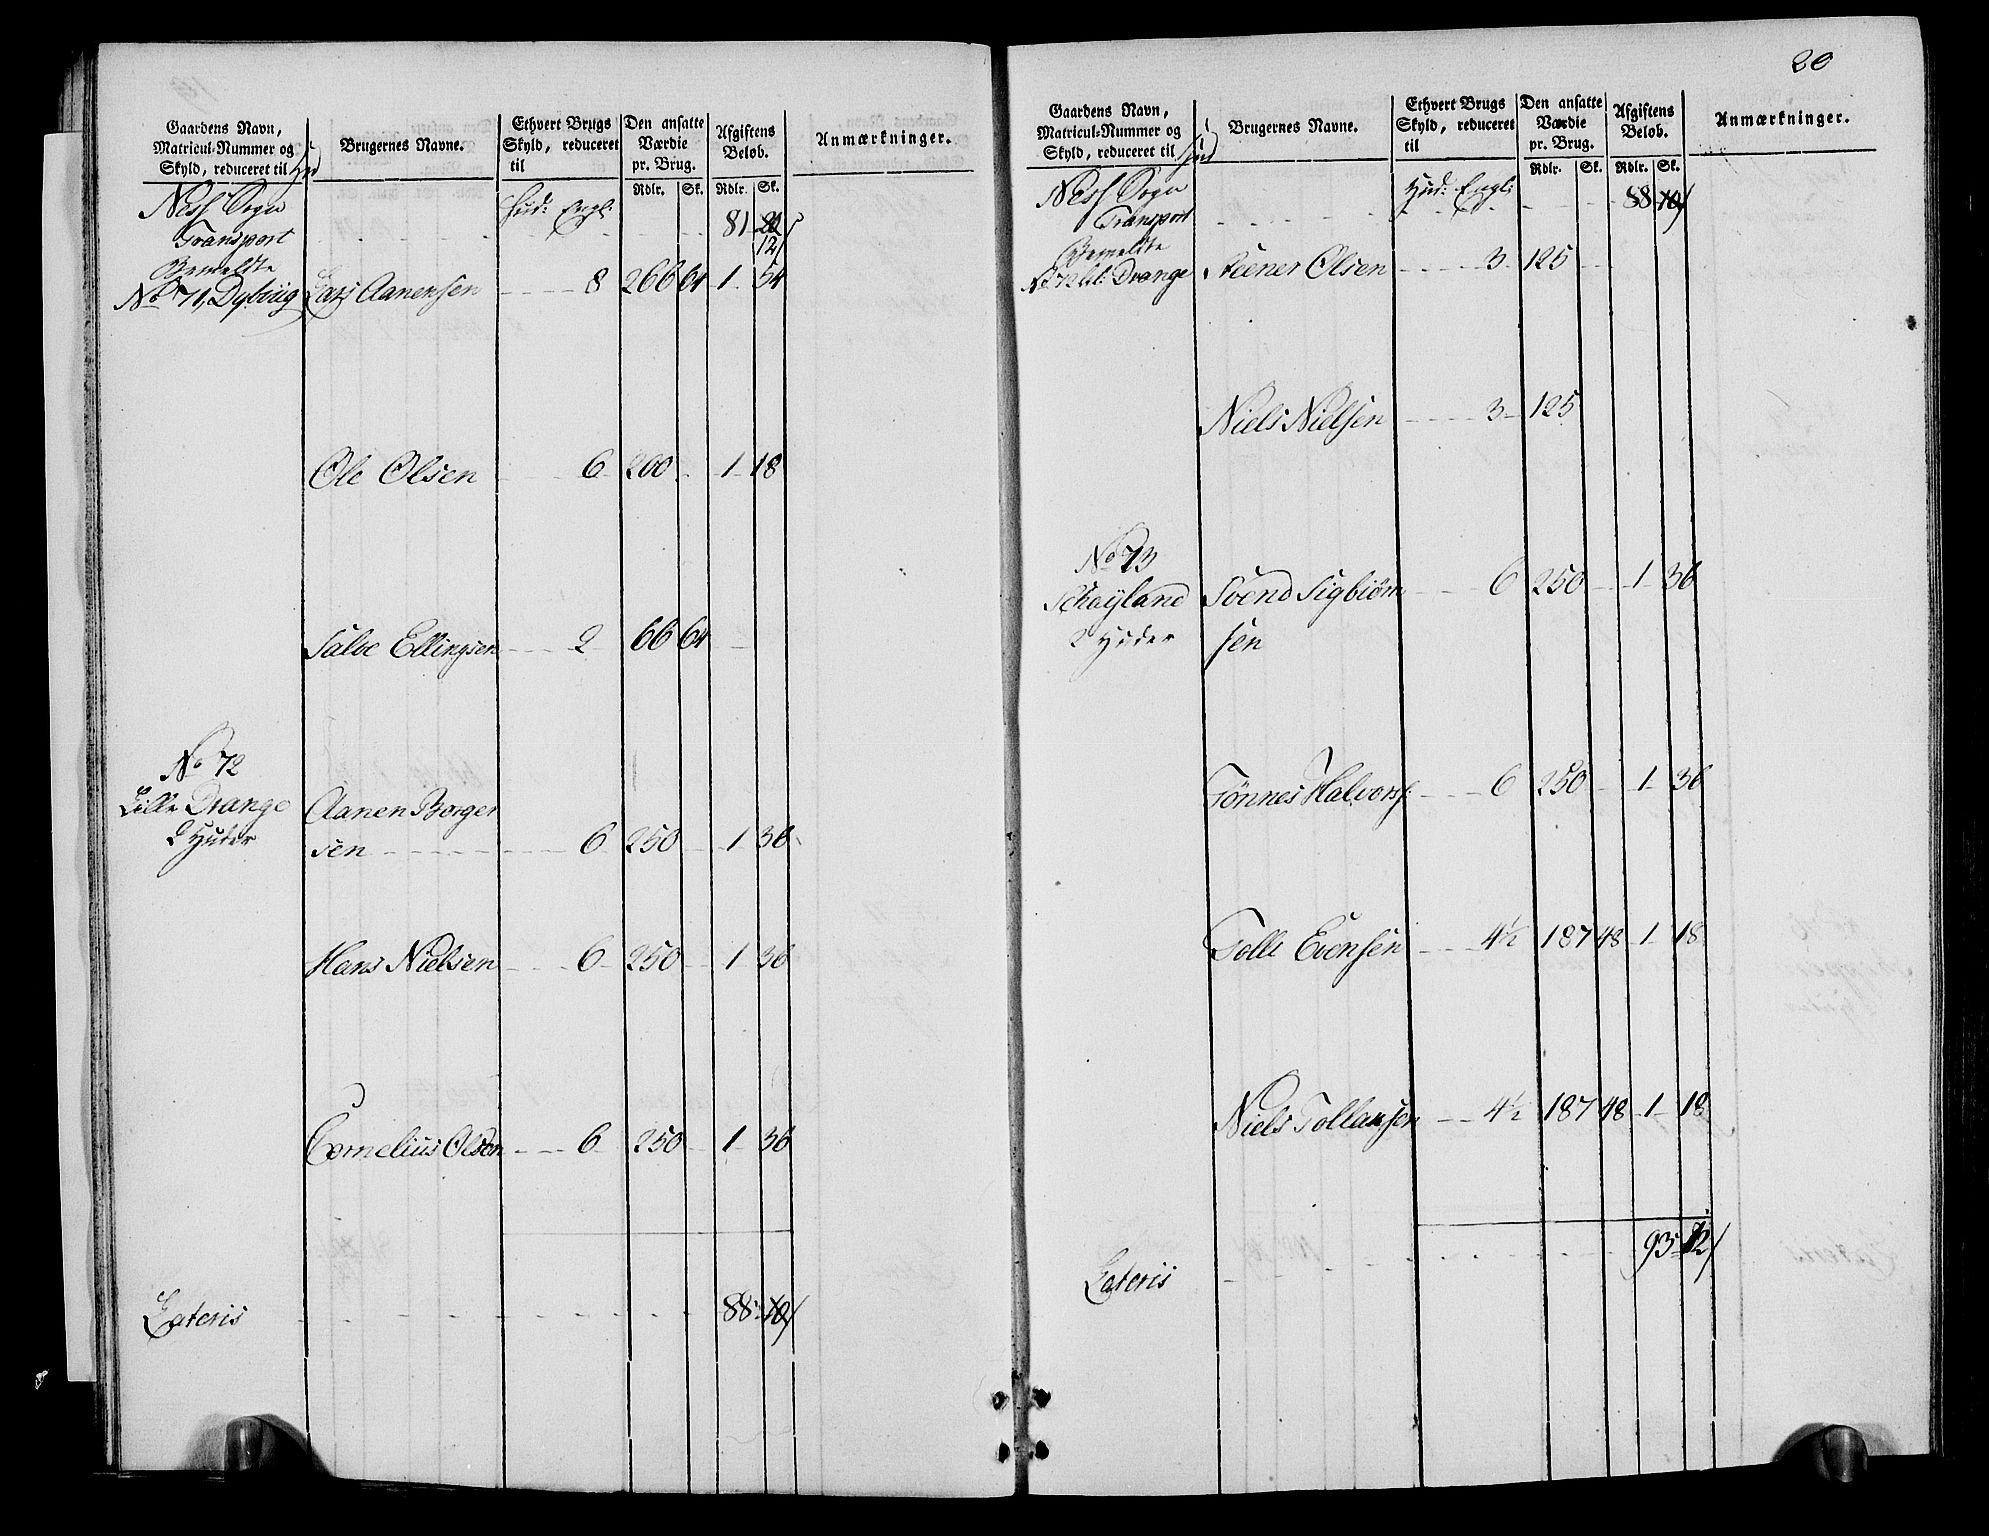 Gaardens Navn, Matricul-Nummer og Skyld, reduceret til Hud
Brugernes Navne.
Ethvert Brugs Skyld, reduceret til
Den ansatte Værdie pr. Brug.
Afgiftens Beløb.
Anmærkninger.
Rdlr. Sk. Rdlr. Sk.
Ness Sogn Hud: Engl:
Transport 81 20
12
Bemeldte
No 71, Dybvig Lars Aanensen 8 266 64 1 54
Ole Olsen 6 200 1 18
Salve Ellingsen 2 66 64
No 72
Lille Drange Aanen Borger
2 Huder sen 6 250 1 36
Hans Nielsen 6 250 1 36
Cornelius Olsen 6 250 1 36
Lateris 88 10
20
Gaardens Navn, Matricul-Nummer og Skyld, reduceret til Hud
Brugernes Navne.
Ethvert Brugs Skyld, reduceret til
Den ansatte Værdie pr. Brug.
Afgiftens Beløb.
Anmærkninger.
Rdlr. Sk. Rdlr. Sk.
Ness Sogn Hud: Engl:
Transport 88 10
Bemeldte
No 72 Lil: Drange Steener Olsen 3 125
Niels Nielsen 3 125
No 73
Svend Sigbiørn 6 250 1 36
2 Huder sen
Tönnes Halvors: 6 250 1 36
Tolle Evensen 4½ 187 48 1 18
Niels Tollaksen 4½ 187 48 1 18
Lateris 93 12